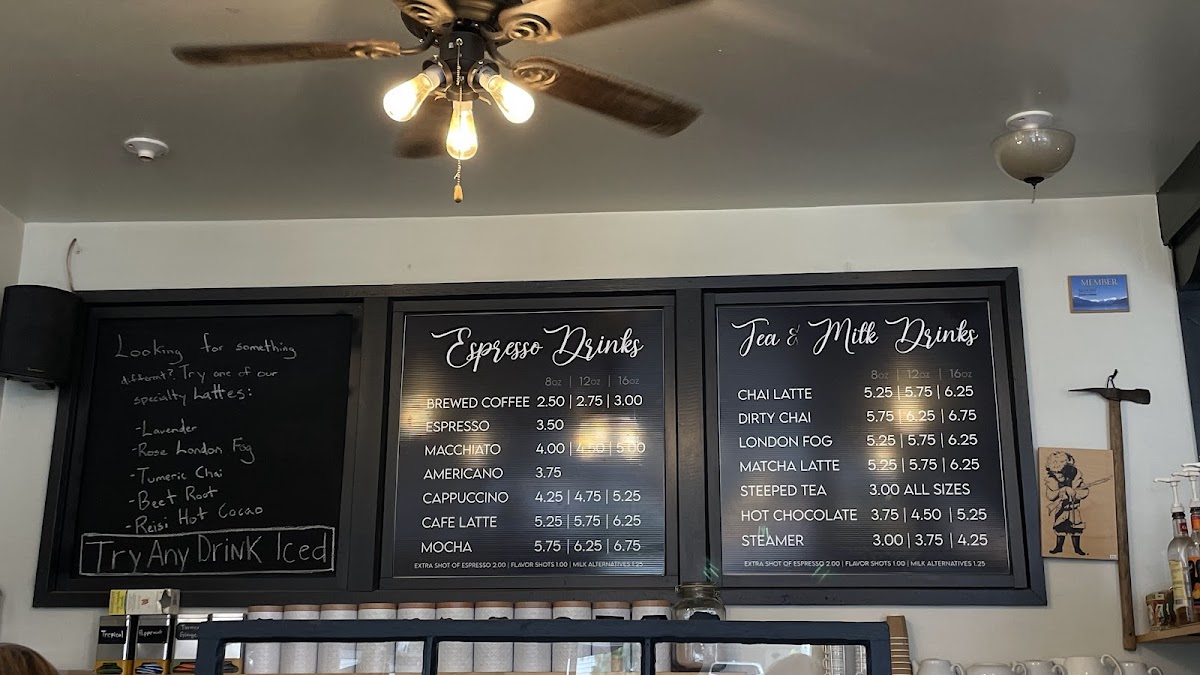 Looking for something
differnt? Try one of our
specialty Lattes:
-Lavender
-Rose London Fog
-Tumeric Chai
-Beet Root
-Reisi Hot Cacao
Try Any Drink Iced
Espresso Drinks
8oz | 12oz | 16oz
BREWED COFFEE 2.50 | 2.75 | 3.00
ESPRESSO 3.50
MACCHIATO 4.00 | 4.50 | 5.00
AMERICANO 3.75
CAPPUCCINO 4.25 | 4.75 | 5.25
CAFE LATTE 5.25 | 5.75 | 6.25
MOCHA 5.75 | 6.25 | 6.75
EXTRA SHOT OF ESPRESSO 2.00 | FLAVOR SHOTS 1.00 | MILK ALTERNATIVES 1.25
Tea & Milk Drinks
8oz | 12oz | 16oz
CHAI LATTE 5.25 | 5.75 | 6.25
DIRTY CHAI 5.75 | 6.25 | 6.75
LONDON FOG 5.25 | 5.75 | 6.25
MATCHA LATTE 5.25 | 5.75 | 6.25
STEEPED TEA 3.00 ALL SIZES
HOT CHOCOLATE 3.75 | 4.50 | 5.25
STEAMER 3.00 | 3.75 | 4.25
EXTRA SHOT OF ESPRESSO 2.00 | FLAVOR SHOTS 1.00 | MILK ALTERNATIVES 1.25
MEMBER
Tropical
Peppermint